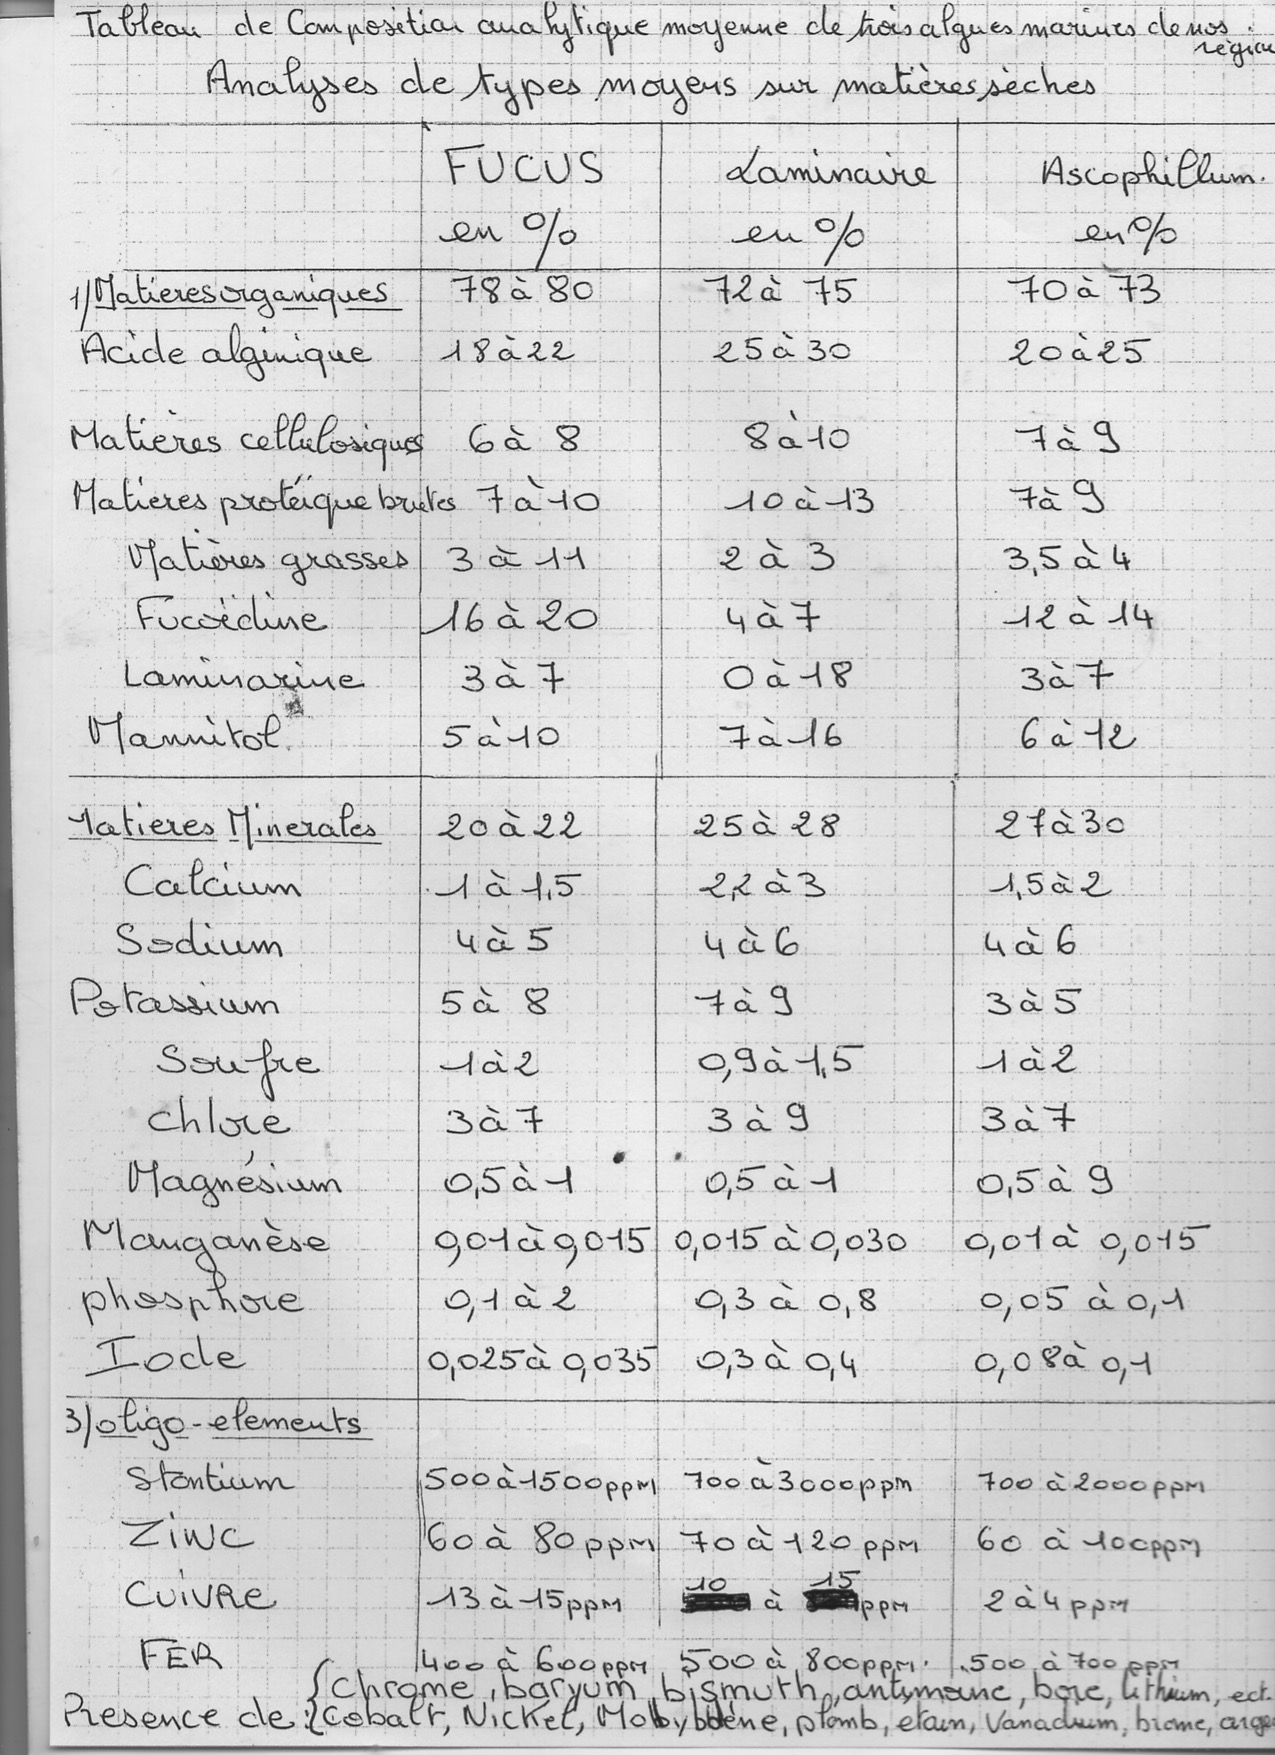 Tableau de Composition analytique moyenne de trois algues marines de nos
région
Analyses de types moyens sur matières sèches
FUCUS Laminaire Ascophillum.
en % en % en %
1/ Matieres organiques 78 à 80 72 à 75 70 à 73
Acide alginique 18 à 22 25 à 30 20 à 25
Matières cellulosiques 6 à 8 8 à 10 7 à 9
Matieres protéique brutes 7 à 10 10 à 13 7 à 9
Matières grasses 3 à 11 2 à 3 3,5 à 4
Fucoïdine 16 à 20 4 à 7 12 à 14
Laminarine 3 à 7 0 à 18 3 à 7
Mannitol. 5 à 10 7 à 16 6 à 12
Matieres Minerales 20 à 22 25 à 28 27 à 30
Calcium 1 à 1,5 2,2 à 3 1,5 à 2
Sodium 4 à 5 4 à 6 4 à 6
Potassium 5 à 8 7 à 9 3 à 5
Soufre 1 à 2 0,9 à 1,5 1 à 2
Chlore 3 à 7 3 à 9 3 à 7
Magnésium 0,5 à 1 0,5 à 1 0,5 à 9
Manganèse 0,01 à 0,015 0,015 à 0,030 0,01 à 0,015
phosphore 0,1 à 2 0,3 à 0,8 0,05 à 0,1
Iode 0,025 à 0,035 0,3 à 0,4 0,08 à 0,1
3/ oligo-elements
Stontium 500 à 1500 ppm 700 à 3000 ppm 700 à 2000 ppm
ZINC 60 à 80 ppm 70 à 120 ppm 60 à 100 ppm
CUIVRE 13 à 15 ppm 10 à 15 ppm 2 à 4 ppm
FER 400 à 600 ppm 500 à 800 ppm. 500 à 700 ppm
{ Chrome, baryum, bismuth, antimoine, bore, lithium, ect.
Presence de : { Cobalt, Nickel, Molybdène, plomb, etain, Vanadium, brome, argen